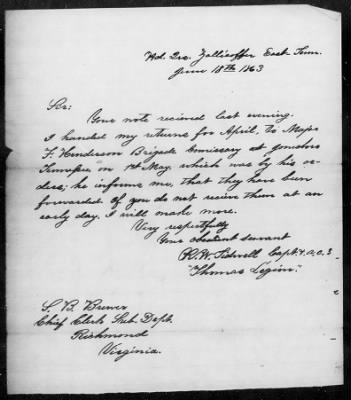 Hd. Qrs. Zollicoffer East Tenn.
June 18th 1863
Sir:
Your note recieved last evening.
I handed my returns for April, to Major
F. Henderson Brigade Comissary at
Tennessee, on 1st May, which was by his or-
ders; he informs me, that they have been
forwarded. If you do not recive them at an
early day, I will made more.
Very respectfully
Your obedient servant
W. Sidwell Capt. & A.C.S
"Thomas Legion".
S. B. Brewer
Chief Clerk Sub. Dept.
Richmond
Virginia.